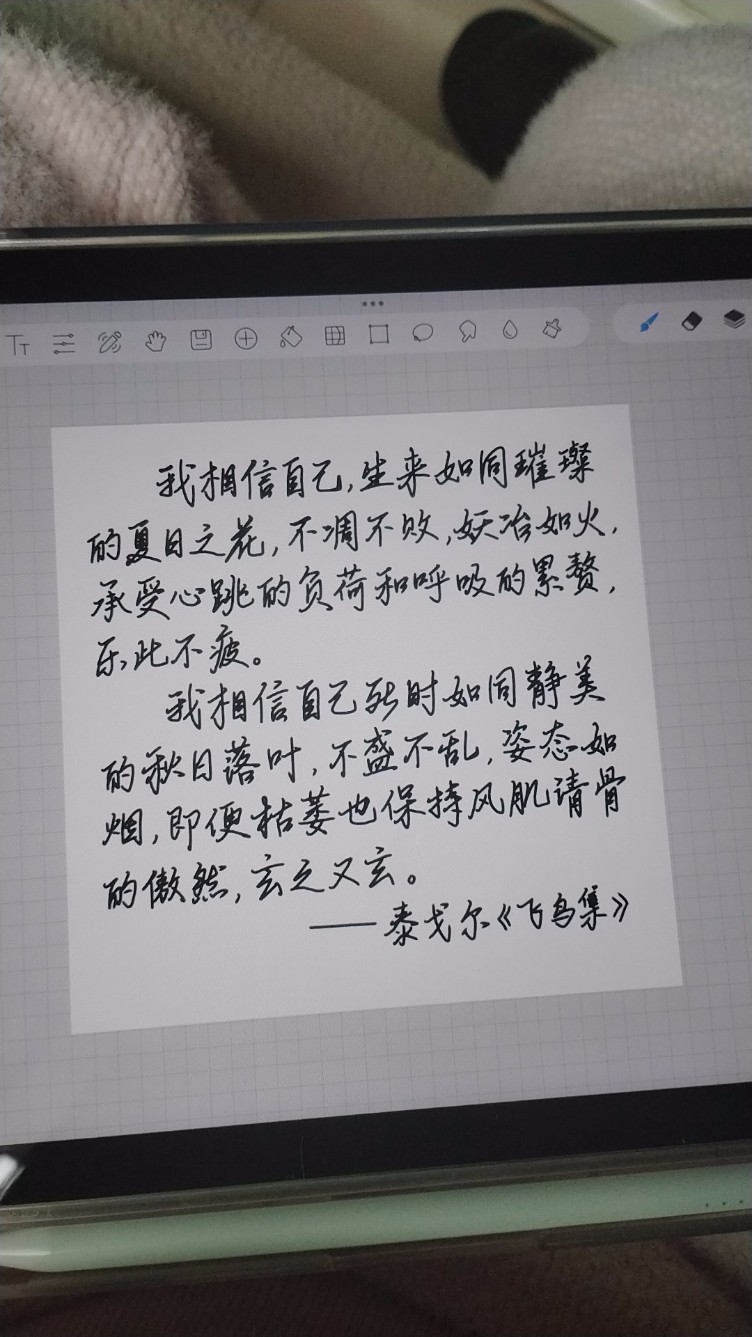 TT
我相信自己,生来如同璀璨
的夏日之花,不凋不败,妖冶如火,
承受心跳的负荷和呼吸的累赘,
乐此不疲。
我相信自己死时如同静美
的秋日落叶,不盛不乱,姿态如
烟,即便枯萎也保持风肌请骨
的傲然,玄之又玄。
——泰戈尔《飞鸟集》